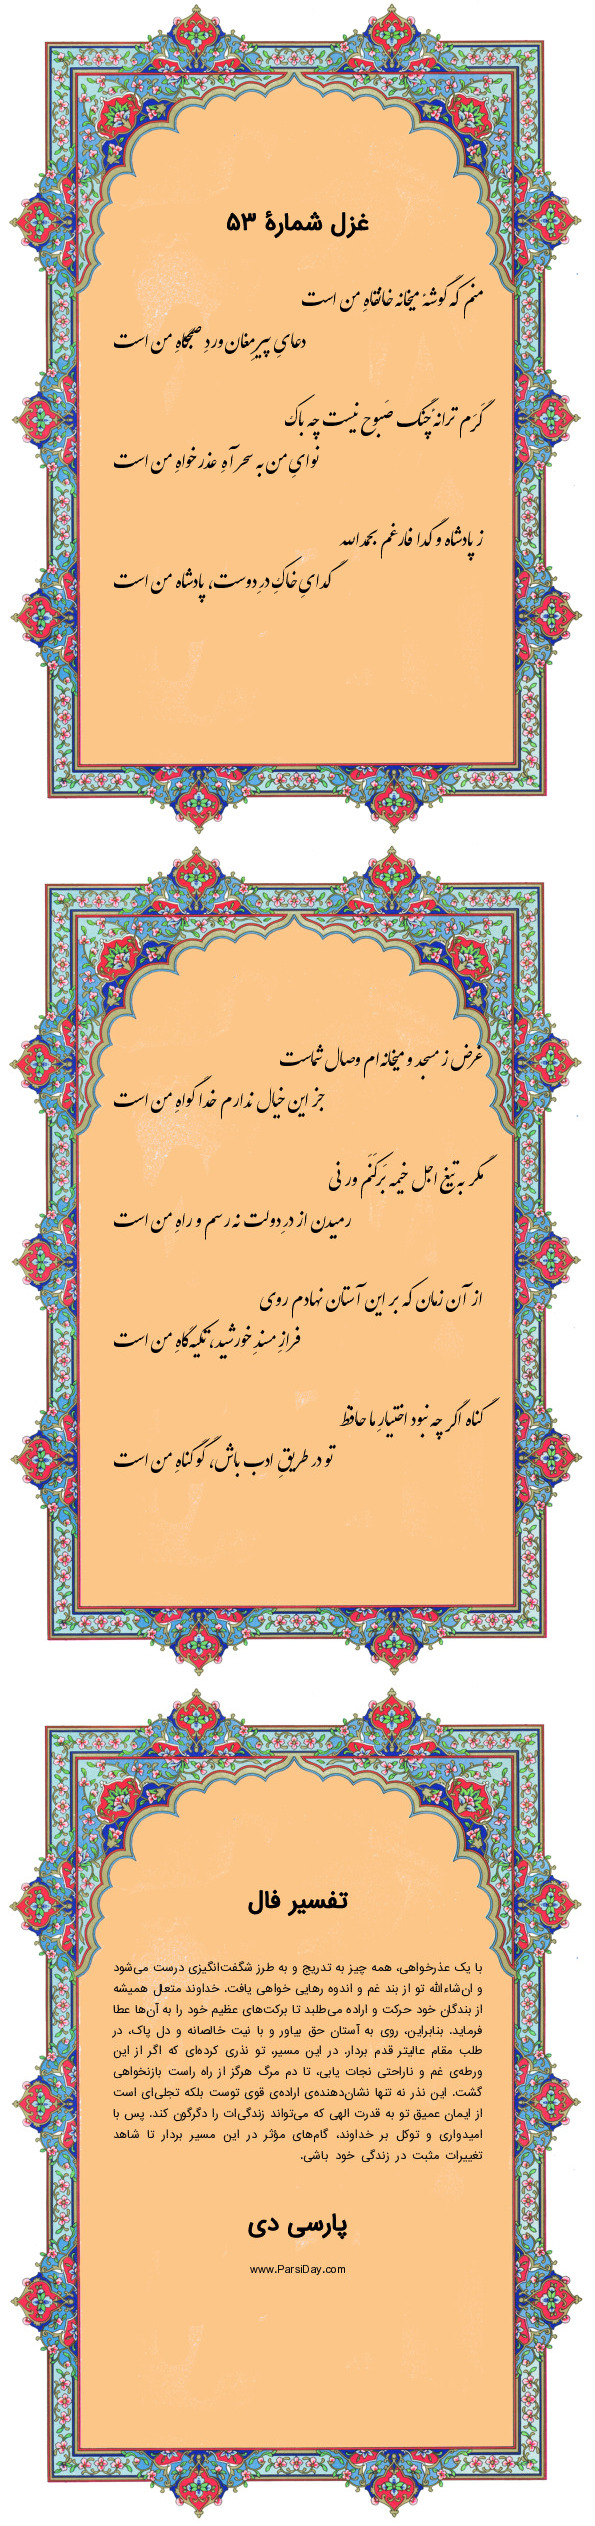 غزل شمارهٔ ۵۳
منم که گوشهٔ میخانه خانقاهِ من است
دعایِ پیرِ مغان وردِ صبحگاهِ من است
گَرَم ترانهٔ چنگ صَبوح نیست چه باک
نوایِ من به سحر آهِ عذرخواهِ من است
ز پادشاه و گدا فارغم بحمدالله
گدایِ خاکِ درِ دوست، پادشاه من است
غرض ز مسجد و میخانه‌ام وصال شماست
جز این خیال ندارم خدا گواهِ من است
مگر به تیغ اجل خیمه بَرکَنَم ور نی
رمیدن از درِ دولت نه رسم و راهِ من است
از آن زمان که بر این آستان نهادم روی
فرازِ مسندِ خورشید، تکیه‌گاهِ من است
گناه اگر چه نبود اختیارِ ما حافظ
تو در طریقِ ادب باش، گو گناهِ من است
تفسیر فال
با یک عذرخواهی، همه چیز به تدریج و به طرز شگفت‌انگیزی درست می‌شود
و ان‌شاءالله تو از بند غم و اندوه رهایی خواهی یافت. خداوند متعال همیشه
از بندگان خود حرکت و اراده می‌طلبد تا برکت‌های عظیم خود را به آن‌ها عطا
فرماید. بنابراین، روی به آستان حق بیاور و با نیت خالصانه و دل پاک، در
طلب مقام عالیتر قدم بردار. در این مسیر، تو نذری کرده‌ای که اگر از این
ورطه‌ی غم و ناراحتی نجات یابی، تا دم مرگ هرگز از راه راست بازنخواهی
گشت. این نذر نه تنها نشان‌دهنده‌ی اراده‌ی قوی توست بلکه تجلی‌ای است
از ایمان عمیق تو به قدرت الهی که می‌تواند زندگی‌ات را دگرگون کند. پس با
امیدواری و توکل بر خداوند، گام‌های مؤثر در این مسیر بردار تا شاهد
تغییرات مثبت در زندگی خود باشی.
پارسی دی
www.ParsiDay.com